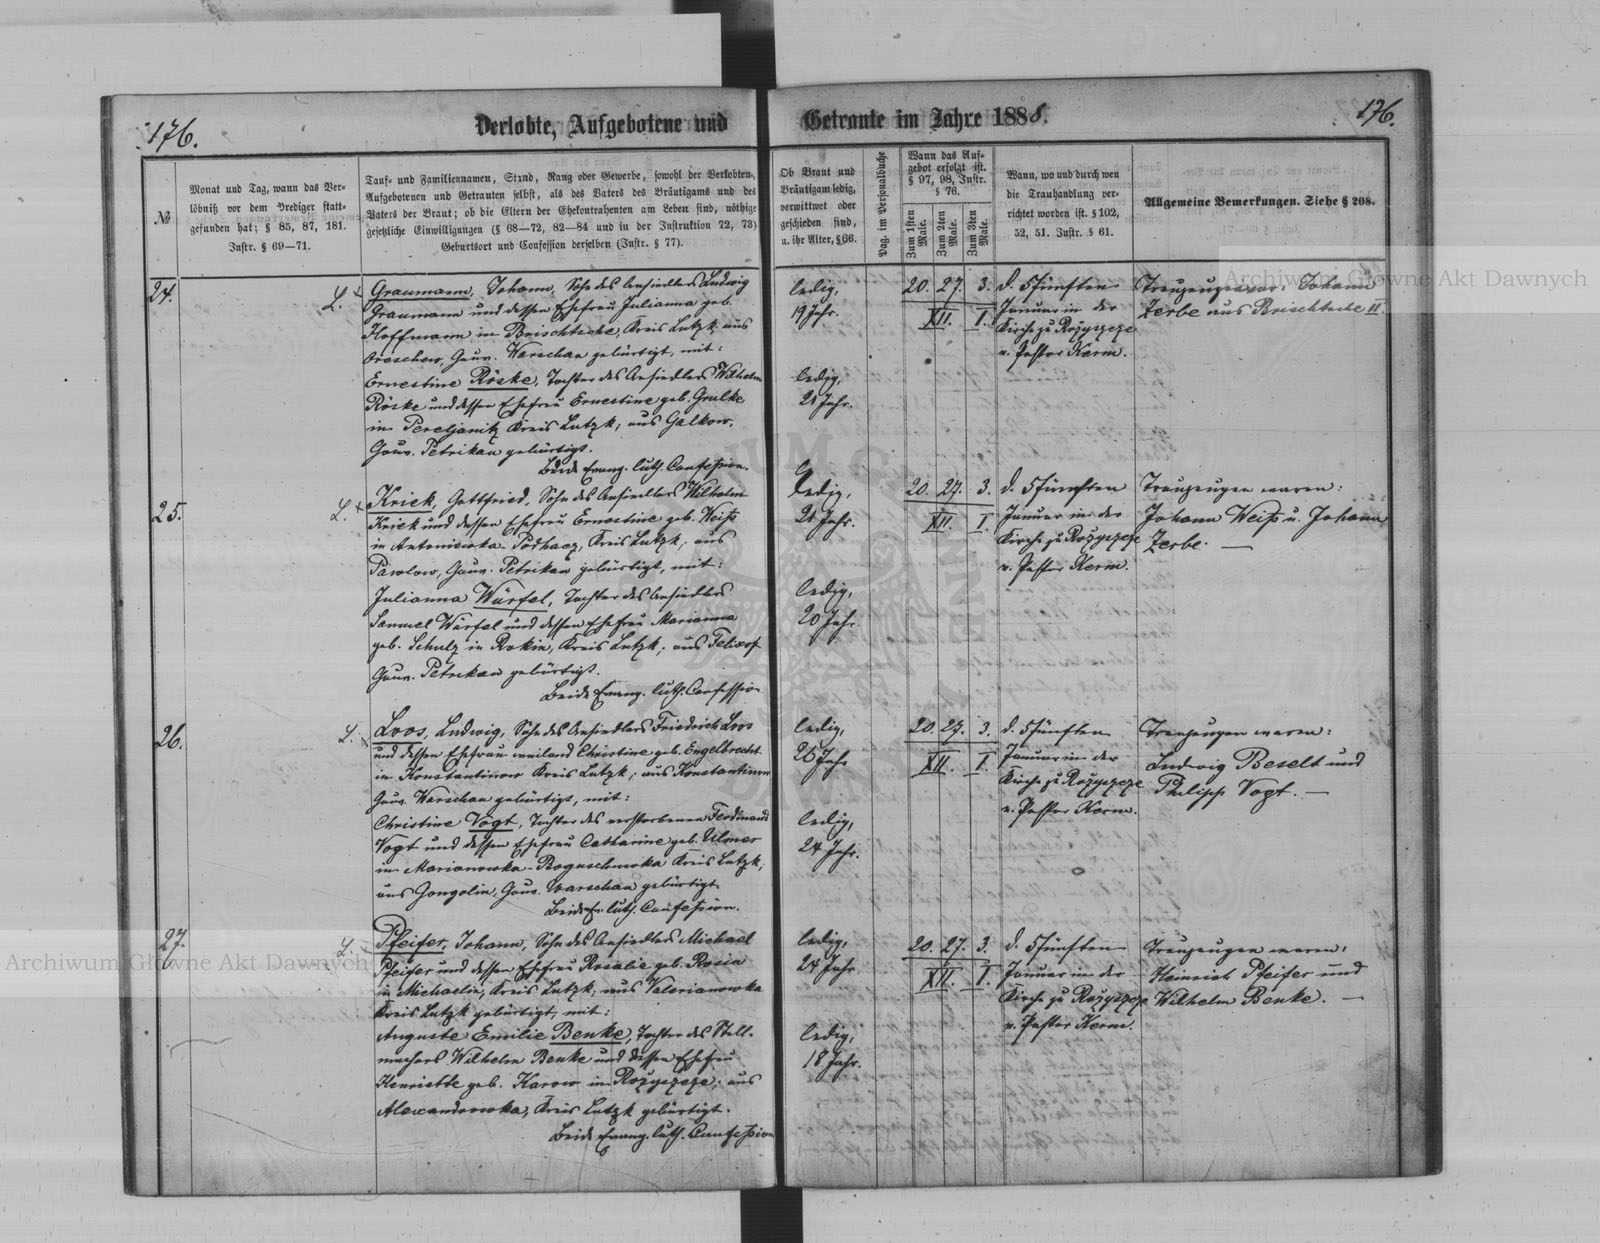 176.
Verlobte, Aufgebotene und
Getraute im Jahre 1888.
176.
№
Monat und Tag, wann das Ver-
löbniß vor dem Prediger statt-
gefunden hat; § 85, 87, 181.
Instr. § 69—71.
Tauf- und Familiennamen, Stand, Rang oder Gewerbe, sowohl der Verlobten,
Aufgebotenen und Getrauten selbst, als des Vaters des Bräutigams und des
Vaters der Braut; ob die Eltern der Ehekontrahenten am Leben sind, nöthige
gesetzliche Einwilligungen (§ 68—72, 82—84 und in der Instruktion 72, 73)
Geburtsort und Confession derselben (Instr. § 77).
Ob Braut und
Bräutigam ledig,
verwittwet oder
geschieden sind,
u. ihr Alter, § 66.
Pag. im Personalbuche
Wann das Auf-
gebot erfolgt ist.
§ 97, 98, Instr.
§ 76.
Zum 1sten Male.
Zum 2ten Male.
Zum 3ten Male.
Wann, wo und durch wen
die Trauhandlung ver-
richtet worden ist. § 102,
52, 51. Instr. § 61.
Allgemeine Bemerkungen. Siehe § 208.
24.
L. Graumann, Johann, Sohn des Ansiedlers Ludwig
Graumann und dessen Ehefrau Julianna geb.
Hoffmann in Brischtsche, Kreis Lutzk, aus
Oreschow, Gouv. Warschau gebürtigt, mit:
Ernestine Röske, Tochter des Ansiedlers Wilhelm
Röske und dessen Ehefrau Ernestine geb. Grulke
in Pereljanitz Kreis Lutzk, aus Galkow,
Gouv. Petrikau gebürtigt.
Beide Evang. luth. Confession.
ledig,
19 Jahr.
ledig,
21 Jahr.
20. 27. 3.
XII. I.
d. 5 fünften
Januar in der
Kirche zu Rozyszcze
v. Pastor Kerm.
Trauzeugen war: Johann
Zerbe aus Brischtsche II.
25.
L. Kriek, Gottfried, Sohn des Ansiedlers Wilhelm
Kriek und dessen Ehefrau Ernestine geb. Weiß
in Antoniewka-Podhacz, Kreis Lutzk, aus
Pawlow, Gouv. Petrikau gebürtigt, mit:
Julianna Würfel, Tochter des Ansiedlers
Samuel Würfel und dessen Ehefrau Marianna
geb. Schulz in Rokin, Kreis Lutzk, aus
Gouv. Petrikau gebürtigt.
Beide Evang. luth. Confession
ledig,
21 Jahr.
ledig,
20 Jahr.
20. 27. 3.
XII. I.
d. 5 fünften
Januar in der
Kirche zu Rozyszcze
v. Pastor Kerm.
Trauzeugen waren:
Johann Weiß u. Johann
Zerbe. —
26.
L. Loos, Ludwig, Sohn des Ansiedlers Friedrich Loos
und dessen Ehefrau weiland Christine geb. Engelbrecht
in Konstantinow Kreis Lutzk, aus Konstantinow
Gouv. Warschau gebürtigt, mit:
Christine Vogt, Tochter des verstorbenen Ferdinand
Vogt und dessen Ehefrau Catharine geb. Ulmer
in Marianowka-Boguschowka Kreis Lutzk,
aus Gongolin, Gouv. Warschau gebürtigt.
Beide Ev. luth. Confession.
ledig,
26 Jahr
ledig,
24 Jahr.
20. 27. 3.
XII. I.
d. 5 fünften
Januar in der
Kirche zu Rozyszcze
v. Pastor Kerm.
Trauzeugen waren:
Ludwig Beselt und
Philipp Vogt. —
27.
L. Pfeifer, Johann, Sohn des Ansiedlers Michael
Pfeifer und dessen Ehefrau Rosalie geb. Rosin
in Michaelin, Kreis Lutzk, aus Valerianowka
Kreis Lutzk gebürtigt, mit:
Auguste Emilie Benke, Tochter des Stell-
machers Wilhelm Benke und dessen Ehefrau
Henriette geb. Karow in Rozyszcze, aus
Alexandrowka, Kreis Lutzk gebürtigt.
Beide Evang. luth. Confession
ledig,
24 Jahr
ledig,
18 Jahr.
20. 27. 3.
XII. I.
d. 5 fünften
Januar in der
Kirche zu Rozyszcze
v. Pastor Kerm.
Trauzeugen waren:
Heinrich Pfeifer und
Wilhelm Benke. —
Archiwum Główne Akt Dawnych
Archiwum Główne Akt Dawnych